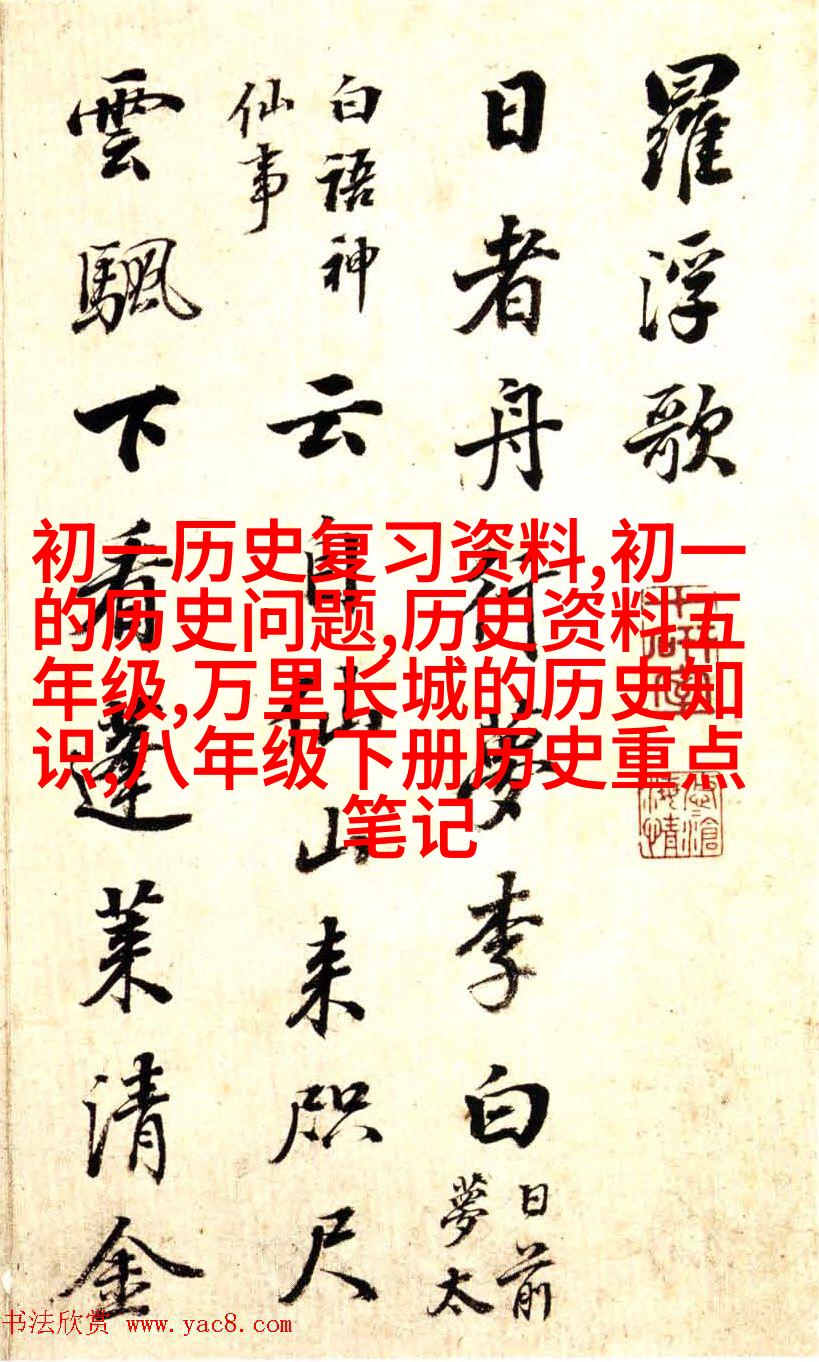 羅浮歌
日者舟行夢李白
日前
夢太
白語神
仙事
云自仙山来咫尺
雲颿下看蓬莱清金
初一历史复习资料,初一
的历史问题,历史资料五
年级,万里长城的历史知
识,八年级下册历史重点
笔记
书法欣赏 www.yac8.com